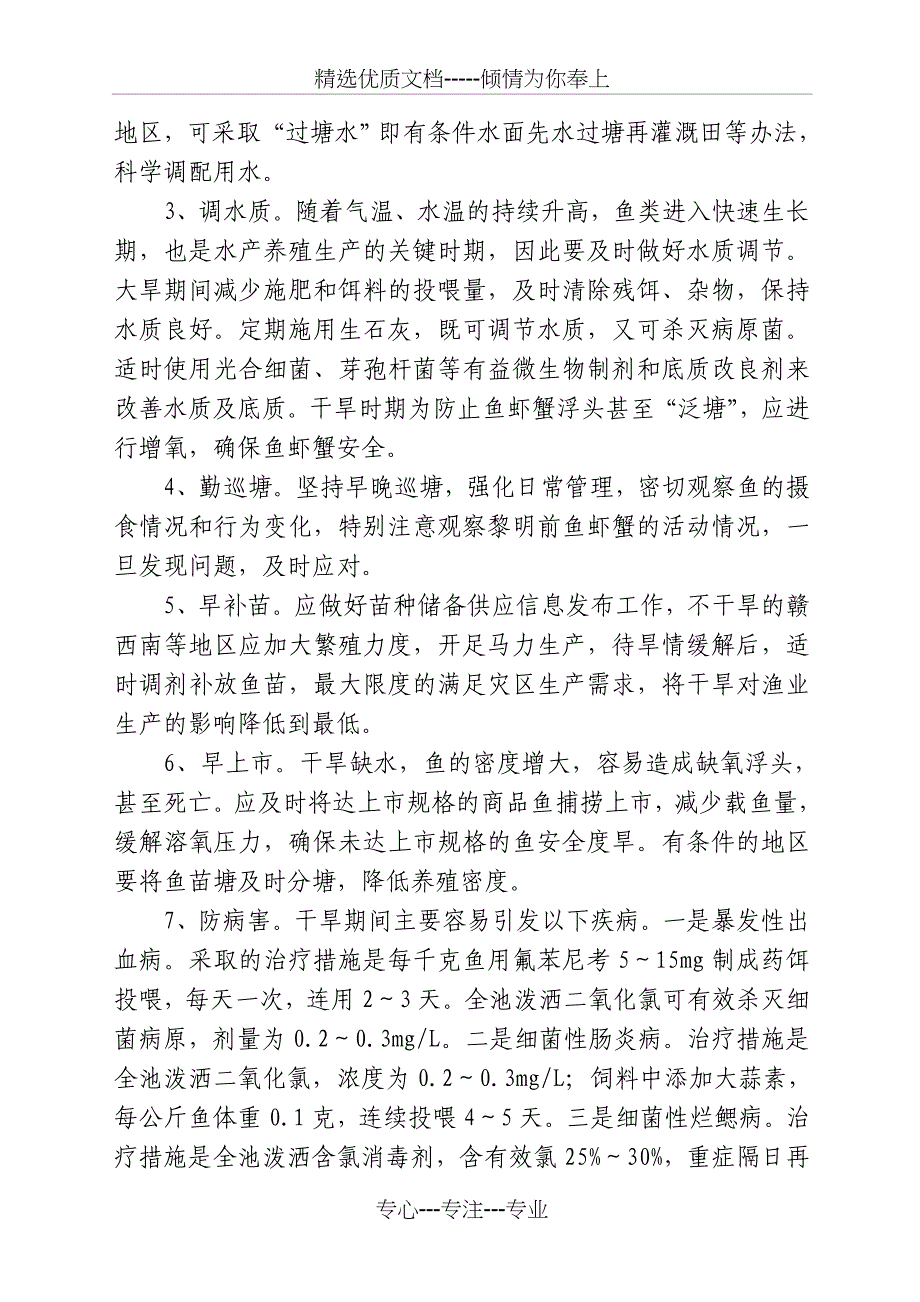 精选优质文档-----倾情为你奉上
地区，可采取“过塘水”即有条件水面先水过塘再灌溉田等办法，
科学调配用水。
3、调水质。随着气温、水温的持续升高，鱼类进入快速生长
期，也是水产养殖生产的关键时期，因此要及时做好水质调节。
大旱期间减少施肥和饵料的投喂量，及时清除残饵、杂物，保持
水质良好。定期施用生石灰，既可调节水质，又可杀灭病原菌。
适时使用光合细菌、芽孢杆菌等有益微生物制剂和底质改良剂来
改善水质及底质。干旱时期为防止鱼虾蟹浮头甚至“泛塘”，应进
行增氧，确保鱼虾蟹安全。
4、勤巡塘。坚持早晚巡塘，强化日常管理，密切观察鱼的摄
食情况和行为变化，特别注意观察黎明前鱼虾蟹的活动情况，一
旦发现问题，及时应对。
5、早补苗。应做好苗种储备供应信息发布工作，不干旱的赣
西南等地区应加大繁殖力度，开足马力生产，待旱情缓解后，适
时调剂补放鱼苗，最大限度的满足灾区生产需求，将干旱对渔业
生产的影响降低到最低。
6、早上市。干旱缺水，鱼的密度增大，容易造成缺氧浮头，
甚至死亡。应及时将达上市规格的商品鱼捕捞上市，减少载鱼量，
缓解溶氧压力，确保未达上市规格的鱼安全度旱。有条件的地区
要将鱼苗塘及时分塘，降低养殖密度。
7、防病害。干旱期间主要容易引发以下疾病。一是暴发性出
血病。采取的治疗措施是每千克鱼用氟苯尼考 5～15mg 制成药饵
投喂，每天一次，连用 2～3 天。全池泼洒二氧化氯可有效杀灭细
菌病原，剂量为 0.2～0.3mg/L。二是细菌性肠炎病。治疗措施是
全池泼洒二氧化氯，浓度为 0.2～0.3mg/L；饲料中添加大蒜素，
每公斤鱼体重 0.1 克，连续投喂 4～5 天。三是细菌性烂鳃病。治
疗措施是全池泼洒含氯消毒剂，含有效氯 25%～30%，重症隔日再
专心---专注---专业